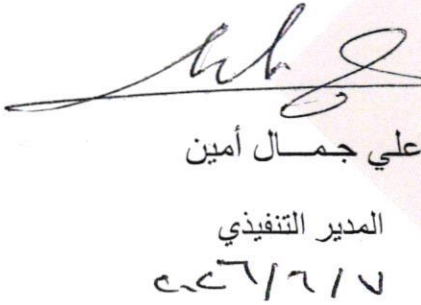 علي جمـــال أمين
المدير التنفيذي
٢٠٢٦/٦/٧